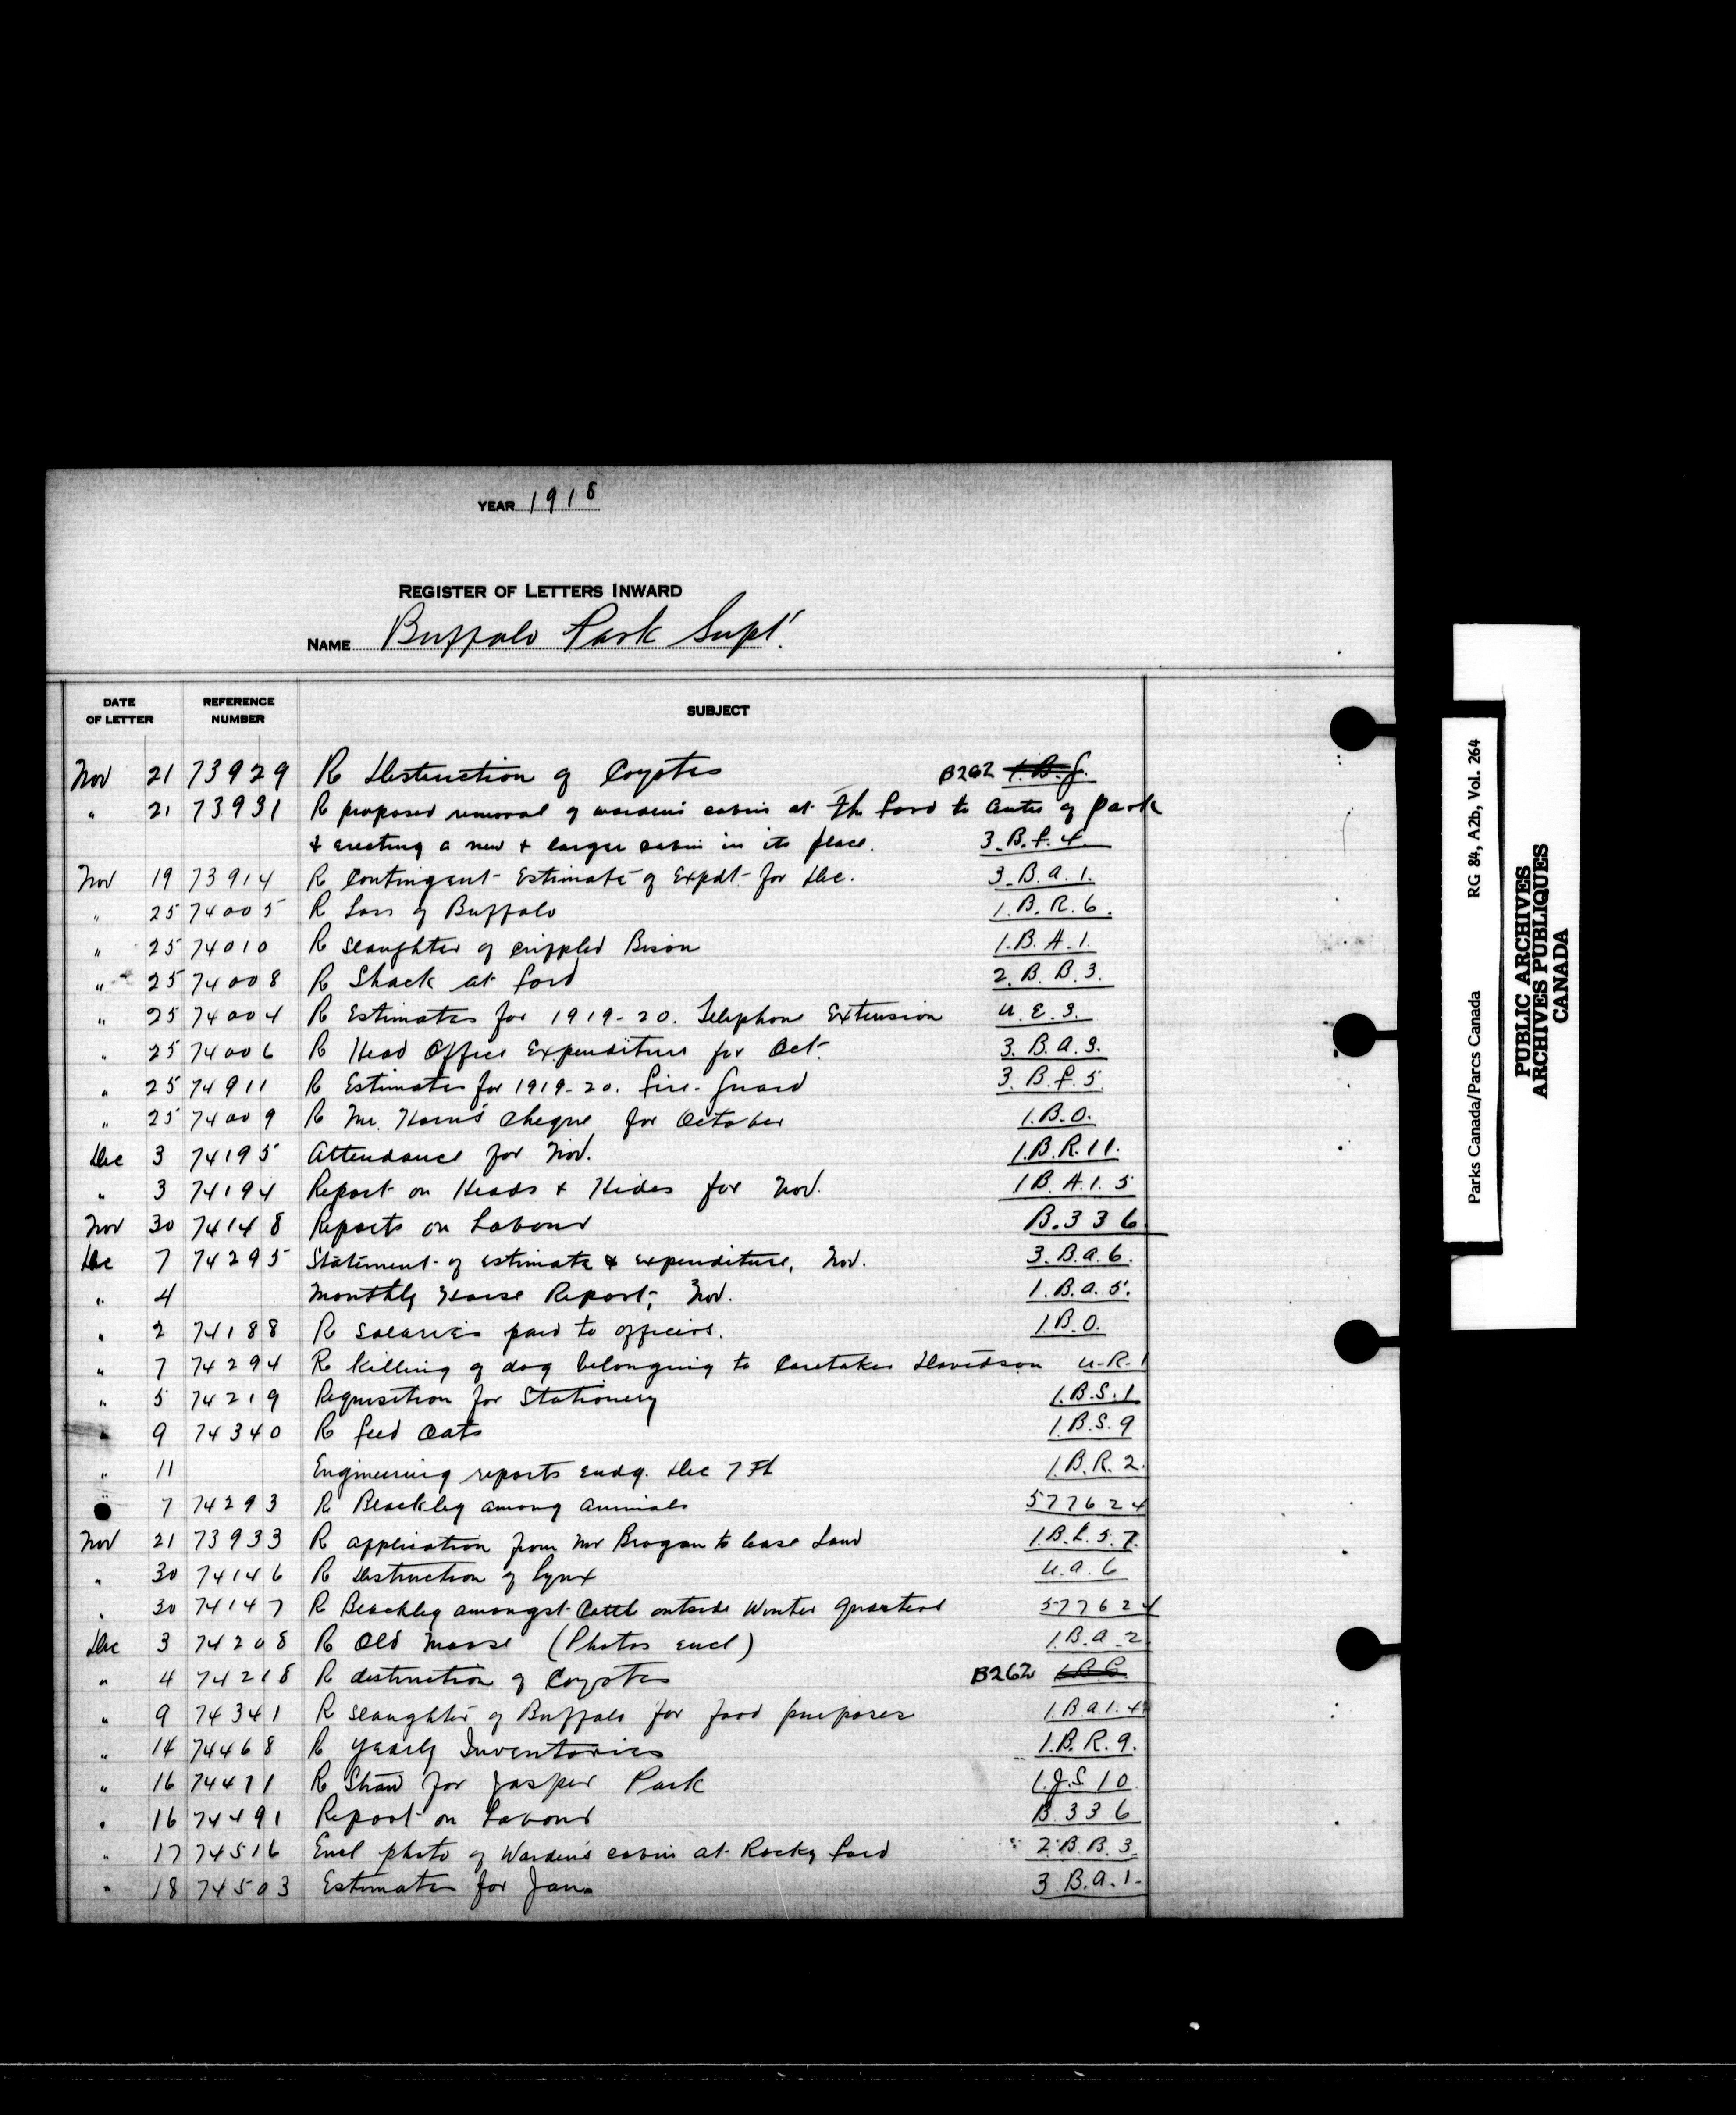 YEAR 1918
REGISTER OF LETTERS INWARD
NAME Buffalo Park Supt.
DATE OF LETTER REFERENCE NUMBER SUBJECT
Nov 21 73929 R Destruction of Coyotes B262 1.B.
" 21 73931 R proposed removal of warden's cabin at The ford to Centre of park
& erecting a new & larger cabin in its place. 3.B.f.4
Nov 19 73914 R Contingent Estimate of Expdt for Dec. 3.B.a.1.
" 25 74005 R Loss of Buffalo 1.B.R.6.
" 25 74010 R slaughter of crippled Bison 1.B.A.1.
" 25 74008 R Shack at ford 2.B.B.3.
" 25 74004 R Estimates for 1919-20. Telephone Extension U.E.3.
" 25 74006 R Head Office Expenditure for Oct. 3.B.a.3.
" 25 74911 R Estimates for 1919-20. fire-guard 3.B.f.5
" 25 74009 R Mr. cheque for October 1.B.O.
Dec 3 74195 Attendance for Nov. 1.B.R.11.
" 3 74194 Report on Heads & Hides for Nov. 1B.A.1.5
Nov 30 74148 Reports on Labour B.336
Dec 7 74295 Statement of estimate & expenditure, Nov. 3.B.a.6.
" 4 Monthly Horse Report, Nov. 1.B.a.5.
" 2 74188 R salaries paid to officers. 1.B.O.
" 7 74294 R killing of dog belonging to Caretaker Davidson U.R.1
" 5 74219 Requisition for Stationery 1.B.S.1
" 9 74340 R feed Oats 1.B.S.9
" 11 Engineering reports endg. Dec 7th 1.B.R.2.
" 7 74293 R Blackleg among animals 577624
Nov 21 73933 R application from Mr Brogan to lease Land 1.B.L.5.7.
" 30 74146 R destruction of Lynx U.a.6
" 30 74147 R Blackleg amongst Cattle outside Winter Quarters 577624
Dec 3 74208 R Old Moose (Photos encl) 1.B.a.2
" 4 74218 R destruction of Coyotes B262
" 9 74341 R slaughter of Buffalo for food purposes 1.B.a.1.4
" 14 74468 R yearly Inventories 1.B.R.9.
" 16 74471 R Straw for Jasper Park 1.J.S.10.
" 16 74491 Report on Labour B.336
" 17 74516 Encl photo of Warden's cabin at Rocky ford 2.B.B.3.
" 18 74503 Estimates for Jan. 3.B.a.1.
Parks Canada/Parcs Canada RG 84, A2b, Vol. 264
PUBLIC ARCHIVES
ARCHIVES PUBLIQUES
CANADA